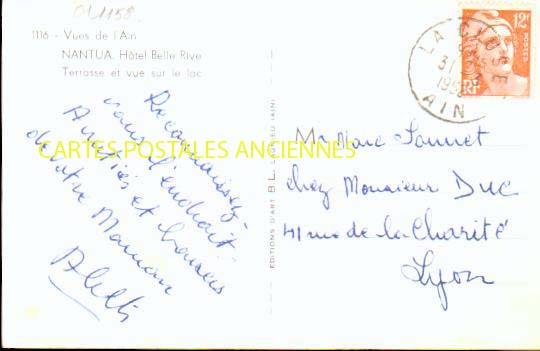 OL1158
1116 - Vues de l'Ain
NANTUA. Hôtel Belle Rive
Terrasse et vue sur le lac
12F
POSTES
RF
LA CLUSE
31
195
AIN
Reconnaissez-
vous l'endroit
Amitiés et baisers
de votre Maman
CARTES POSTALES ANCIENNES
EDITIONS D'ART B.L. LAGNIEU (AIN)
Mr Marc Sonnet
chez Monsieur DUC
41 rue de la Charité
Lyon